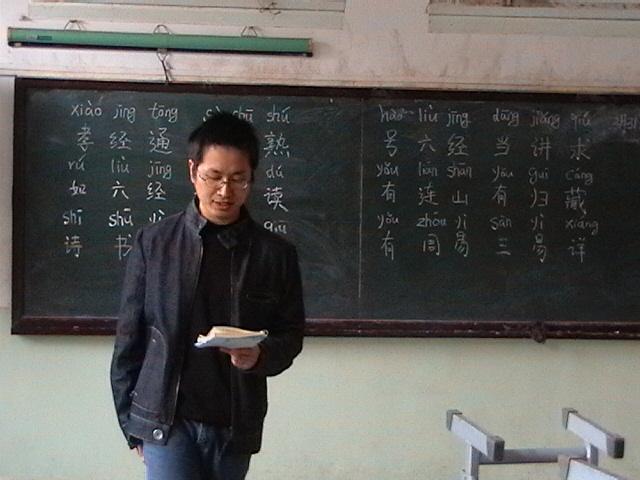 xiào jīng tōng sì shū shú
孝 经 通 熟
rú liù jīng dú
如 六 经 读
shī shū yì qiū
诗 书
hào liù jīng dāng jiǎng qiú
号 六 经 当 讲 求
yǒu lián shān yǒu guī cáng
有 连 山 有 归 藏
yǒu zhōu yì sān yì xiáng
有 周 易 三 易 详